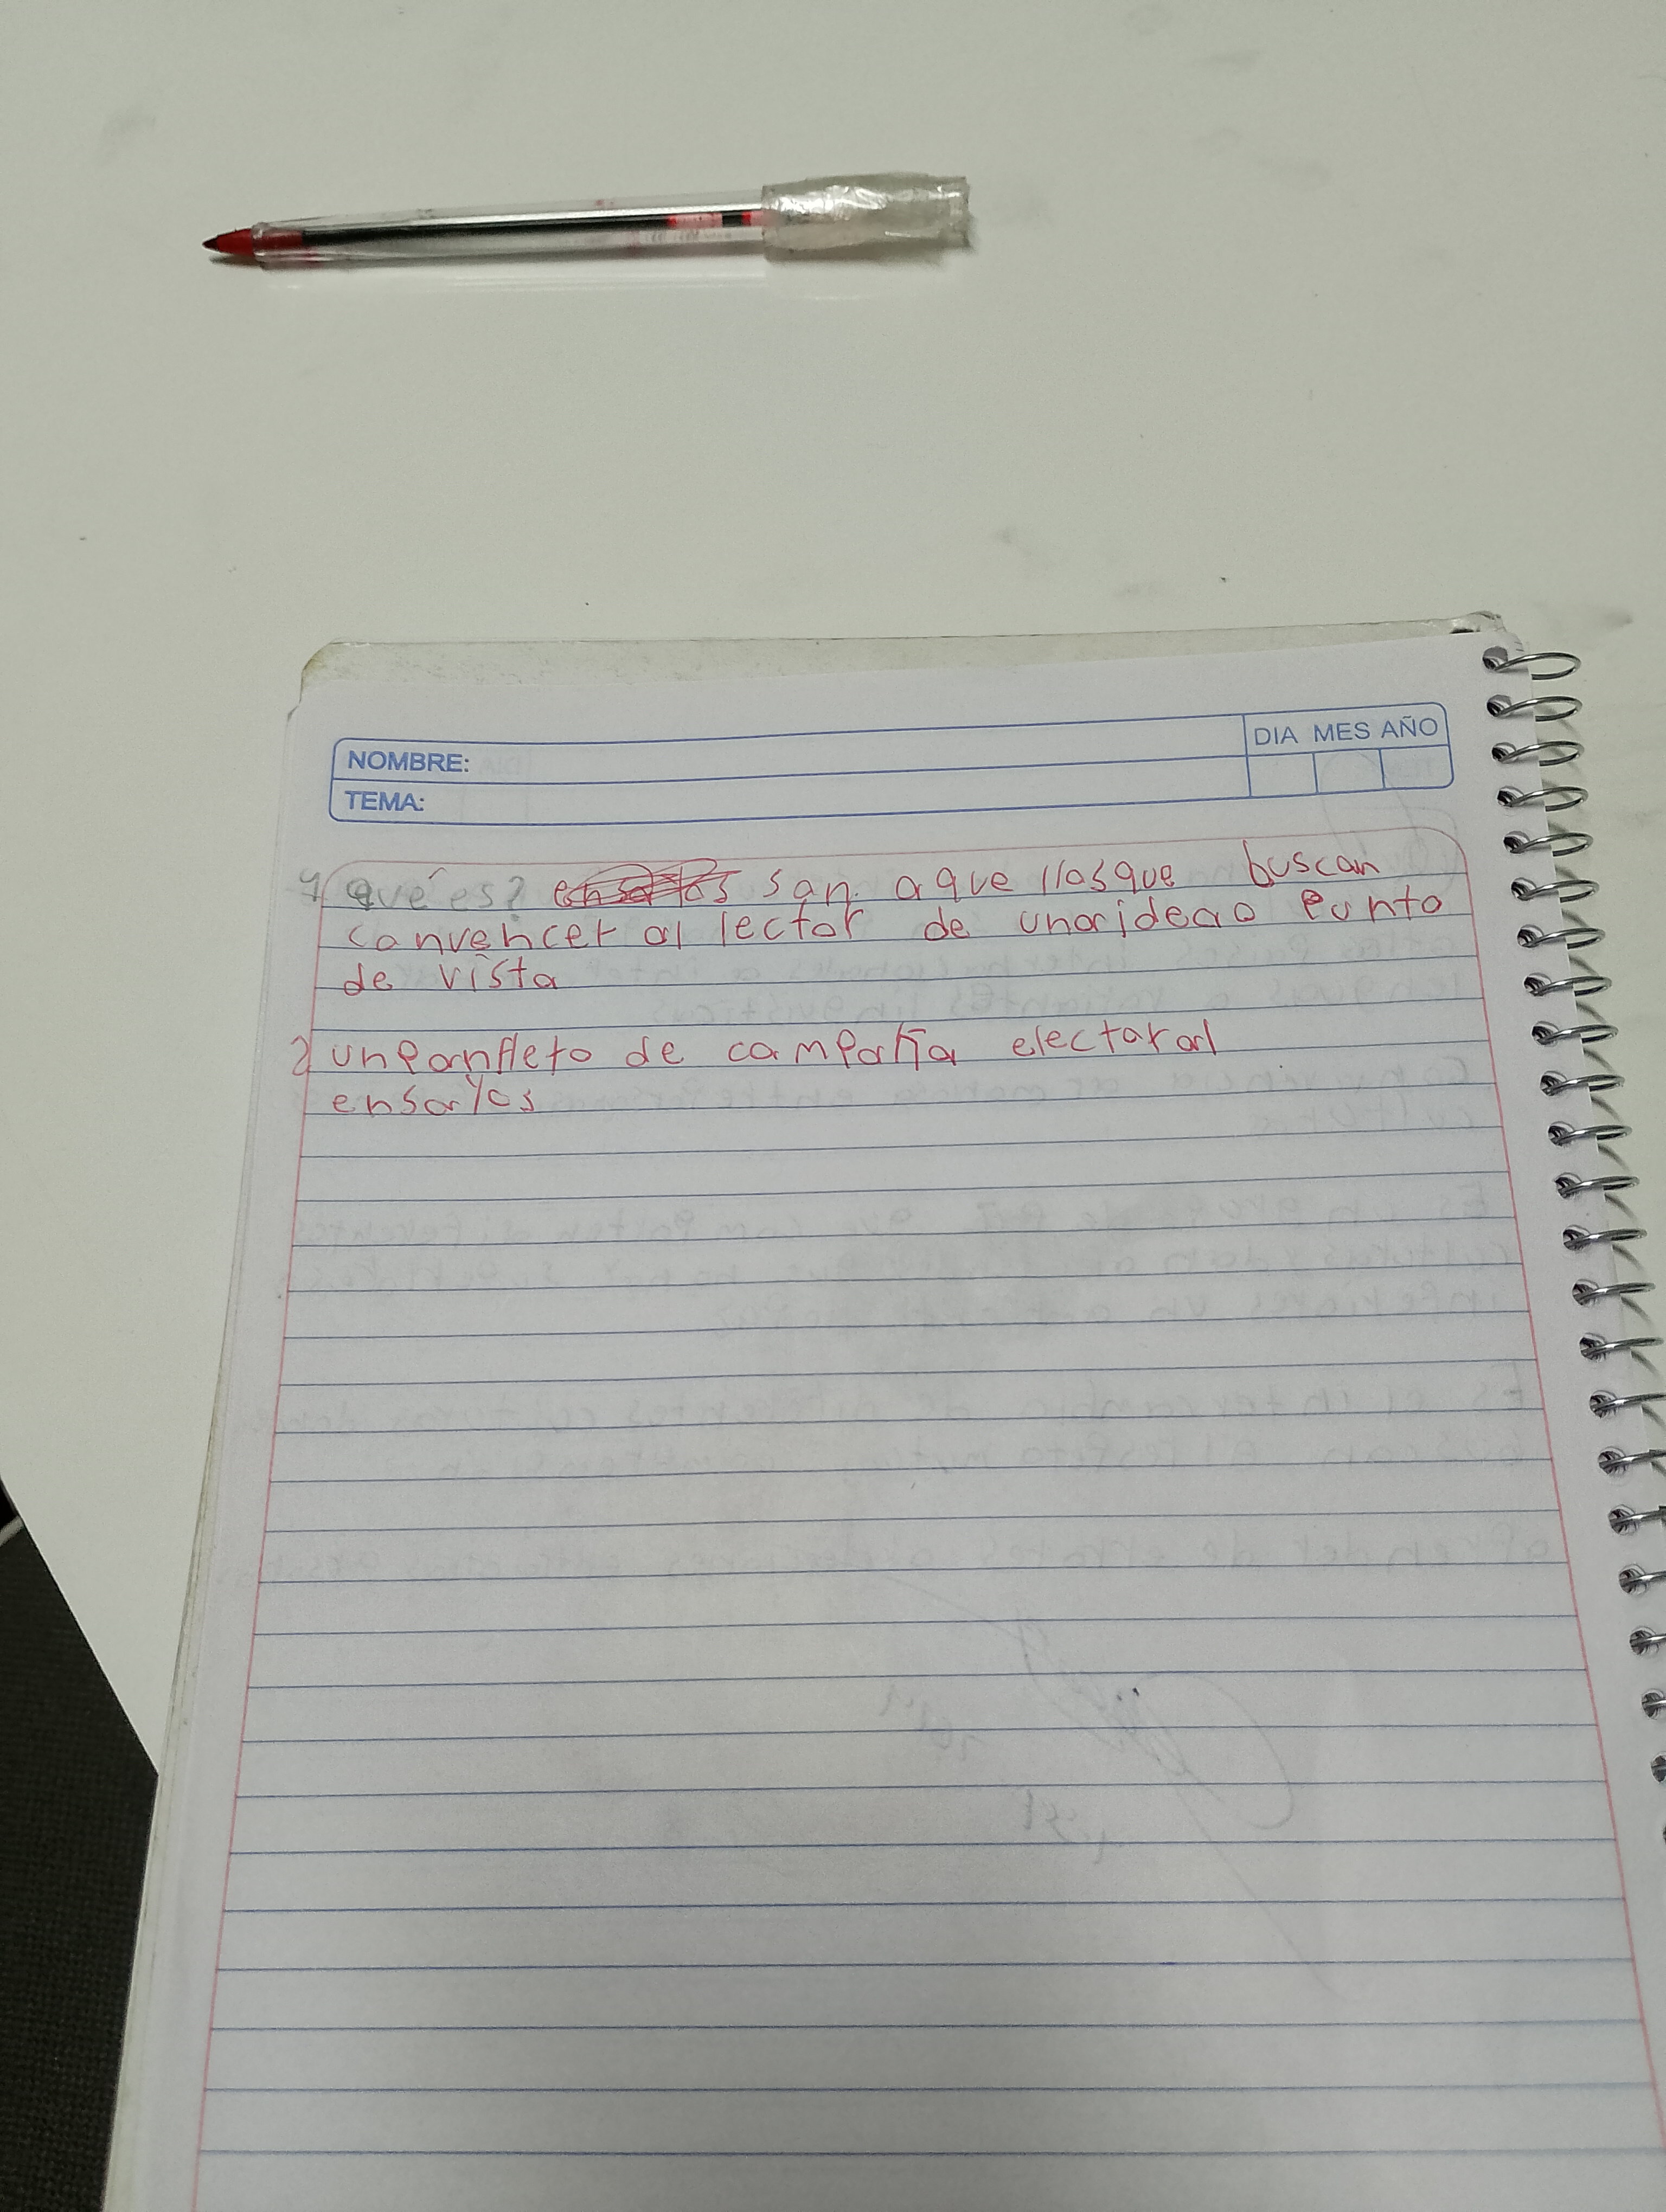 NOMBRE:
DIA MES AÑO
TEMA:
1 qué es? san aquellos que buscan
canvencer al lector de una idea o punto
de vista
2 un panfleto de campaña electaral
ensayos